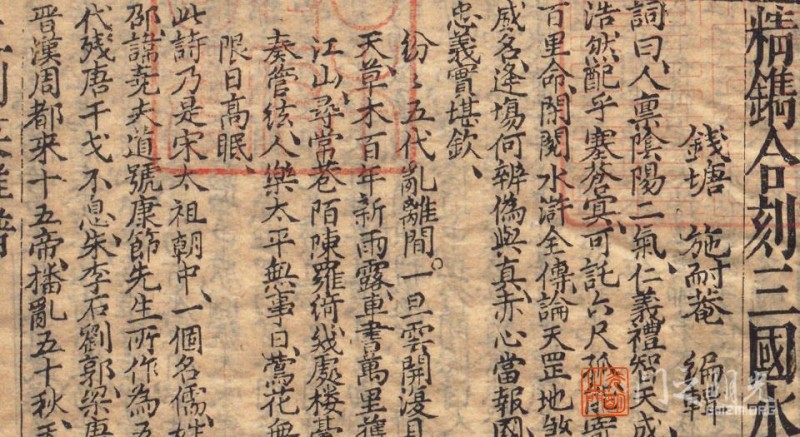 精鐫合刻三國水
錢塘 施耐菴 編輯
詞曰、人禀陰陽二氣、仁義禮智天成、
浩然配乎塞蒼冥、可託六尺孤、能寄
百里命、閑閱水滸全傳、論天罡地煞
威名、逢場何辨偽與真、赤心當報國、
忠義實堪欽、
紛〻五代亂離間。一旦雲開復見
天、草木百年新雨露、車書萬里舊
江山、尋常巷陌陳羅綺、幾處楼臺
奏管絃、人樂太平無事日、鶯花無
限日高眠、
此詩乃是宋太祖朝中、一個名儒、姓
邵諱堯夫、道號康節先生所作、為五
代殘唐、干戈不息、朱李石劉郭、梁唐
晉漢周、都來十五帝、播亂五十秋、天